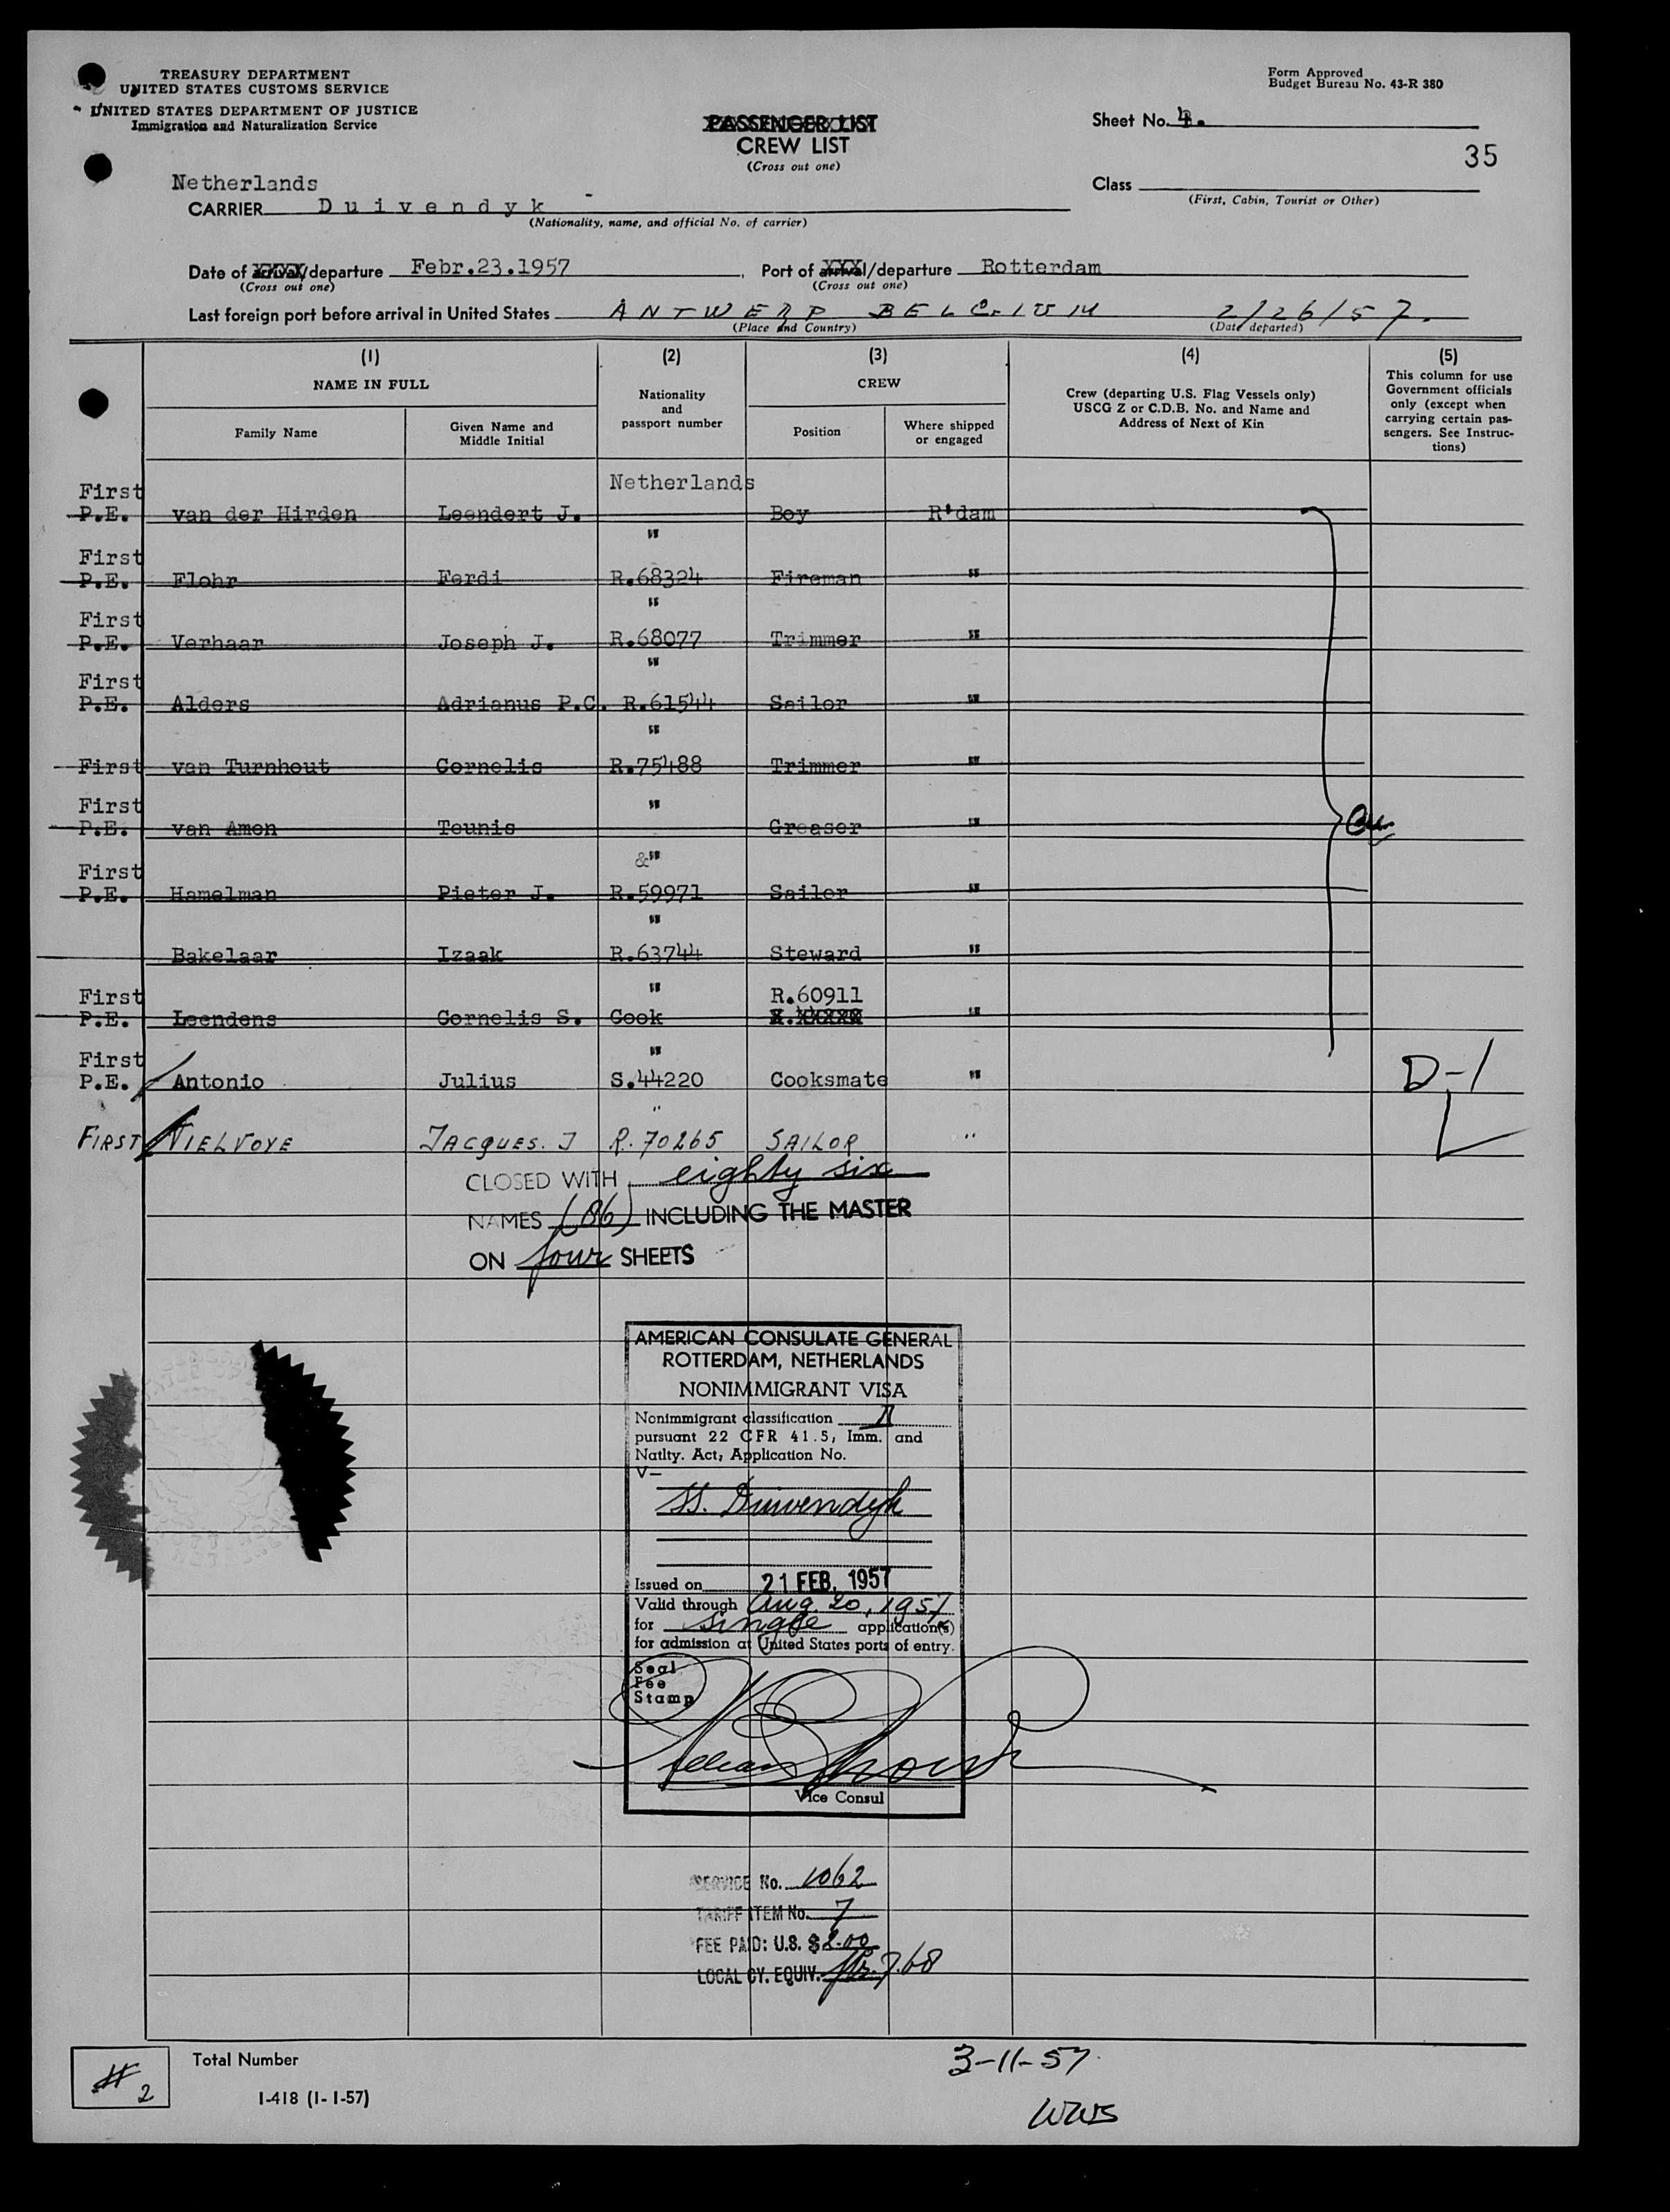 TREASURY DEPARTMENT
UNITED STATES CUSTOMS SERVICE
UNITED STATES DEPARTMENT OF JUSTICE
Immigration and Naturalization Service
Form Approved
Budget Bureau No. 43-R 380
PASSENGER LIST
CREW LIST
(Cross out one)
Sheet No. 4.
35
Class
(First, Cabin, Tourist or Other)
Netherlands
CARRIER Duivendyk
(Nationality, name, and official No. of carrier)
Date of arrival/departure Febr.23.1957, Port of arrival/departure Rotterdam
(Cross out one) (Cross out one)
Last foreign port before arrival in United States ANTWERP BELGIUM 2/26/57.
(Place and Country) (Date departed)
(1) (2) (3) (4) (5)
NAME IN FULL
Nationality and passport number
CREW
Crew (departing U.S. Flag Vessels only) USCG Z or C.D.B. No. and Name and Address of Next of Kin
This column for use Government officials only (except when carrying certain passengers. See Instructions)
Family Name Given Name and Middle Initial Position Where shipped or engaged
First Netherlands
P.E. van der Hirden Leendert J. Boy R'dam
First "
P.E. Flohr Ferdi R.68324 Fireman "
First "
P.E. Verhaar Joseph J. R.68077 Trimmer "
First "
P.E. Alders Adrianus P.C. R.61544 Sailor "
"
First van Turnhout Cornelis R.75488 Trimmer "
First "
P.E. van Amen Teunis Greaser "
First &"
P.E. Hamelman Pieter J. R.59971 Sailor "
"
Bakelaar Izaak R.63744 Steward "
First " R.60911
P.E. Leendens Cornelis S. Cook "
First "
P.E. Antonio Julius S.44220 Cooksmate " D-1
"
FIRST VIELVOYE JACQUES. J R. 70265 SAILOR "
CLOSED WITH eighty six
NAMES (86) INCLUDING THE MASTER
ON four SHEETS
AMERICAN CONSULATE GENERAL
ROTTERDAM, NETHERLANDS
NONIMMIGRANT VISA
Nonimmigrant classification D
pursuant 22 CFR 41.5, Imm. and
Natlty. Act; Application No.
V—
SS. Duivendyk
Issued on 21 FEB. 1957
Valid through Aug. 20, 1957
for single application(s)
for admission at United States ports of entry.
Seal
Fee
Stamp
Vice Consul
SERVICE No. 1062
TARIFF ITEM No. 7
FEE PAID: U.S. $2.00
LOCAL CY. EQUIV. fls. 7.68
# 2
Total Number
I-418 (1-1-57)
3-11-57
WWS